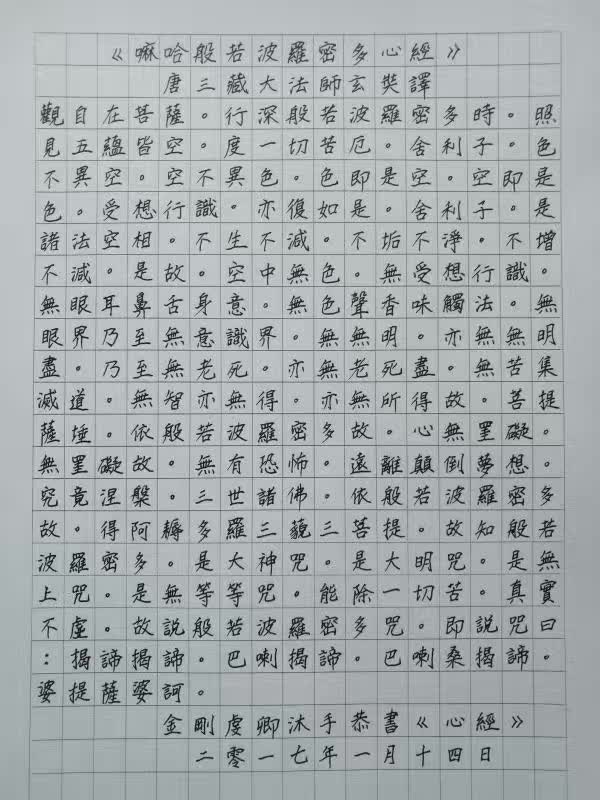 《嘛哈般若波羅密多心經》
唐三藏大法師玄奘譯
觀自在菩薩。行深般若波羅密多時。照
見五蘊皆空。度一切苦厄。舍利子。色
不異空。空不異色。色即是空。空即是
色。受想行識。亦復如是。舍利子。是
諸法空相。不生不滅。不垢不淨。不增
不減。是故。空中無色。無受想行識。
無眼耳鼻舌身意。無色聲香味觸法。無
眼界乃至無意識界。無無明。亦無無明
盡。乃至無老死。亦無老死盡。無苦集
滅道。無智亦無得。亦無所得故。菩提
薩埵。依般若波羅密多故。心無罣礙。
無罣礙故。無有恐怖。遠離顛倒夢想。
究竟涅槃。三世諸佛。依般若波羅密多
故。得阿耨多羅三藐三菩提。故知般若
波羅密多。是大神咒。是大明咒。是無
上咒。是無等等咒。能除一切苦。真實
不虛。故説般若波羅密多咒。即説咒曰
：揭諦揭諦。巴喇揭諦。巴喇桑揭諦。
婆提薩婆訶。
金剛虔卿沐手恭書《心經》
二零一七年一月十四日